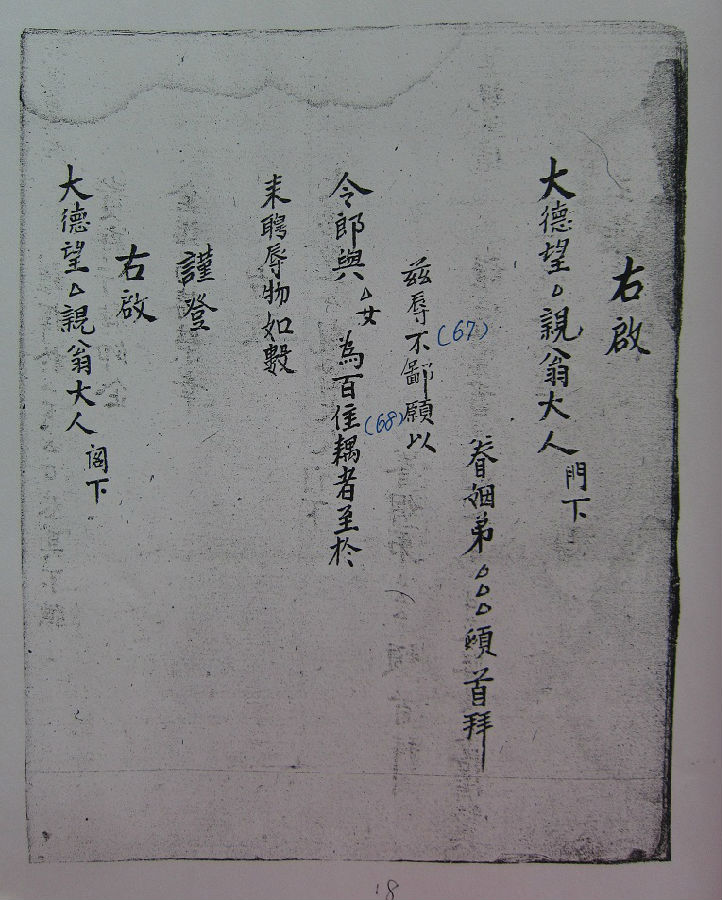 右啟
大德望△親翁大人 門下
眷姻弟△△△頓首拜
茲辱不鄙願以
(67)
令郎與△女為百佳耦者至於
(68)
耒聘辱物如數
謹登
右啟
大德望△親翁大人 閣下
18